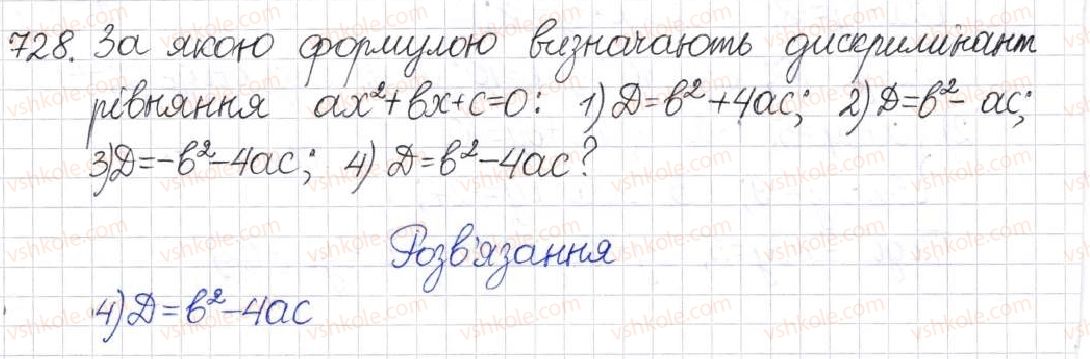 728. За якою формулою визначають дискримінант
рівняння ax²+вx+c=0: 1) Д=в²+4ac; 2) Д=в²- ac;
3) Д=-в²-4ac; 4) Д=в²-4ac?
Розв'язання
4) Д=в²-4ac